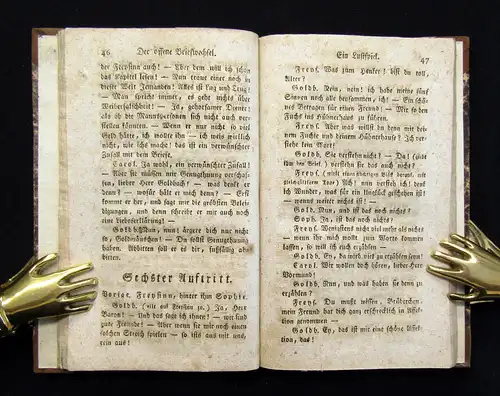 46 Der offene Briefwechsel.
der Freysinn auch! — Aber dem will ich schon
das Kapitel lesen! — Nun traue einer noch in
dieser Welt Jemanden! Alles ist Lug und Trug!
— Man spricht immer, es gehe nichts über
Weiberfalschheit! — Ja, gehorsamer Diener;
als ob die Mannspersonen sich nicht auch ver-
stellen könnten. — Wenn er nur nicht so viel
Geld hätte, ich wollte ihn — ich weis nicht,
was, wie und wo ich — das ist ein verwünschter
Zufall mit dem Briefe.
Carol. Ja wohl, ein verwünschter Zufall!
— Aber sie müssen mir Genugthuung verschaf-
fen, lieber Herr Goldbach! — was denkt er
denn? — wofür hält er mich denn? — Erst
kommt er her, und sagt mir die größten Belei-
digungen, und denn schreibt er mir auch noch
eine Liebeserklärung! —
Goldb. Nun, nun! ärgere dich nur nicht
so, Goldmäuschen! — Du sollst Genugthuung
haben. Abbitten soll er es dir, fußfällig ab-
abbitten.
Sechster Auftritt.
Vorige. Freysinn, hinter ihm Sophie.
Goldb. (auf ihn zu.) Ja, Herr
Baron! — Und das sage ich ihnen! — wir sind
gute Freunde! — Aber wenn sie mir noch einen
solchen Streich spielen — so ists aus mit uns,
rein aus!
Ein Lustspiel. 47
Freys. Was zum Henker! bist du toll,
Alter?
Goldb. Nein, nein! ich will keinem
Sinnen noch alle beysammen, ich! — Ein schö-
nes Betragen für einen Freund! — Mir so den
Fuchs ins Hühnerhaus zu führen.
Freys. Aber was willst du denn mit dei-
nem Fuchse und deinem Hühnerhause? Ich ver-
stehe kein Wort!
Goldb. Sie verstehn nicht? — Da! (giebt
ihm den Brief.) verstehn sie das auch nicht?
Freys. Ach! nun versteh ich! denn
ich Wunder, was für ein Unglück geschehen ist!
— wenns weiter nichts ist! —
Goldb. Nun, und ist das noch nichts?
Soph. Ja, ist das noch nichts?
Freys. Wenigstens nicht viel mehr als nichts
— wenn ihr mich wollt zum Worte kommen
lassen, so will ich euch erzählen —
Goldb. Ey, da wird viel zu erzählen seyn!
Carol. Wir wollen doch hören, lieber Herr
Vormund!
Goldb. Nun, und was haben sie denn zu
erzählen?
Freys. Du must wissen, Brüderchen,
mein Freund hat dich ganz erschrecklich in Affek-
tion genommen —
Goldb. Ey, das ist mir eine schöne Affek-
tion, das!